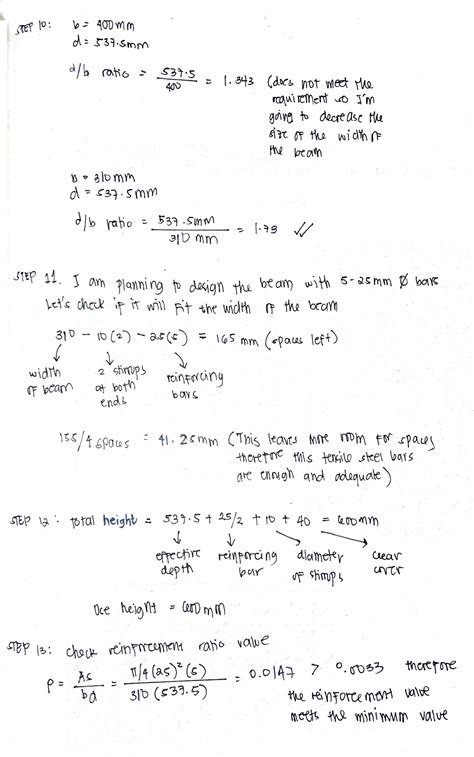 STEP 10: b = 400mm
d = 537.5mm
d/b ratio = 537.5 / 400 = 1.343 (does not meet the
requirement so I'm
going to decrease the
size of the width of
the beam
b = 310mm
d = 537.5mm
d/b ratio = 537.5mm / 310 mm = 1.73 ✓✓
STEP 11. I am planning to design the beam with 5-25mm Ø bars
Let's check if it will fit the width of the beam
310 - 10(2) - 25(5) = 165 mm (spaces left)
width
of beam
2 stirrups
at both
ends
reinforcing
bars
155/4 spaces = 41.25mm (This leaves more room for spaces
therefore this tensile steel bars
are enough and adequate)
STEP 12: total height = 537.5 + 25/2 + 10 + 40 = 600mm
effective
depth
reinforcing
bar
diameter
of stirrups
clear
cover
Use height = 600mm
STEP 13: check reinforcement ratio value
ρ = As / bd = π/4(25)²(5) / 310(537.5) = 0.0147 > 0.0033 therefore
the reinforcement value
meets the minimum value